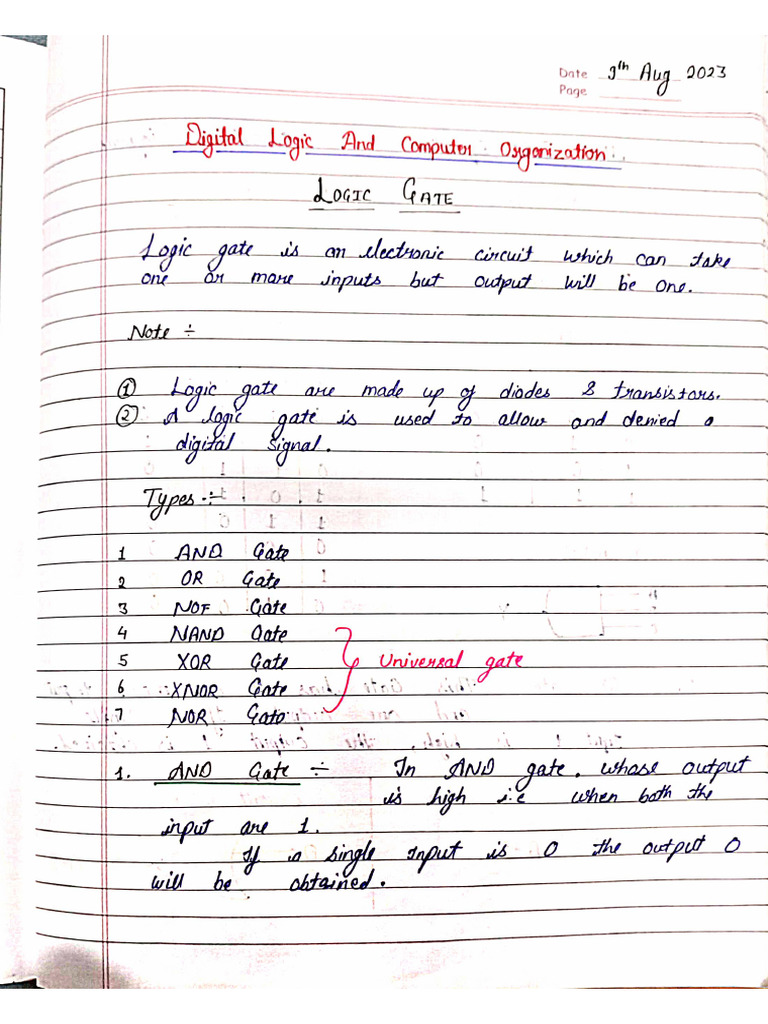 Date 9th Aug 2023
Page
Digital Logic And Computer Organization
LOGIC GATE
Logic gate is an electronic circuit which can take
one or more inputs but output will be one.
Note ÷
① Logic gate are made up of diodes & transistors.
② A logic gate is used to allow and denied a
digital signal.
Types ÷
1 AND Gate
2 OR Gate
3 NOT Gate
4 NAND Gate
5 XOR Gate Universal gate
6 XNOR Gate
7 NOR Gate
1. AND Gate ÷ In AND gate, whose output
is high i.e when both the
input are 1.
If a single input is 0 the output 0
will be obtained.